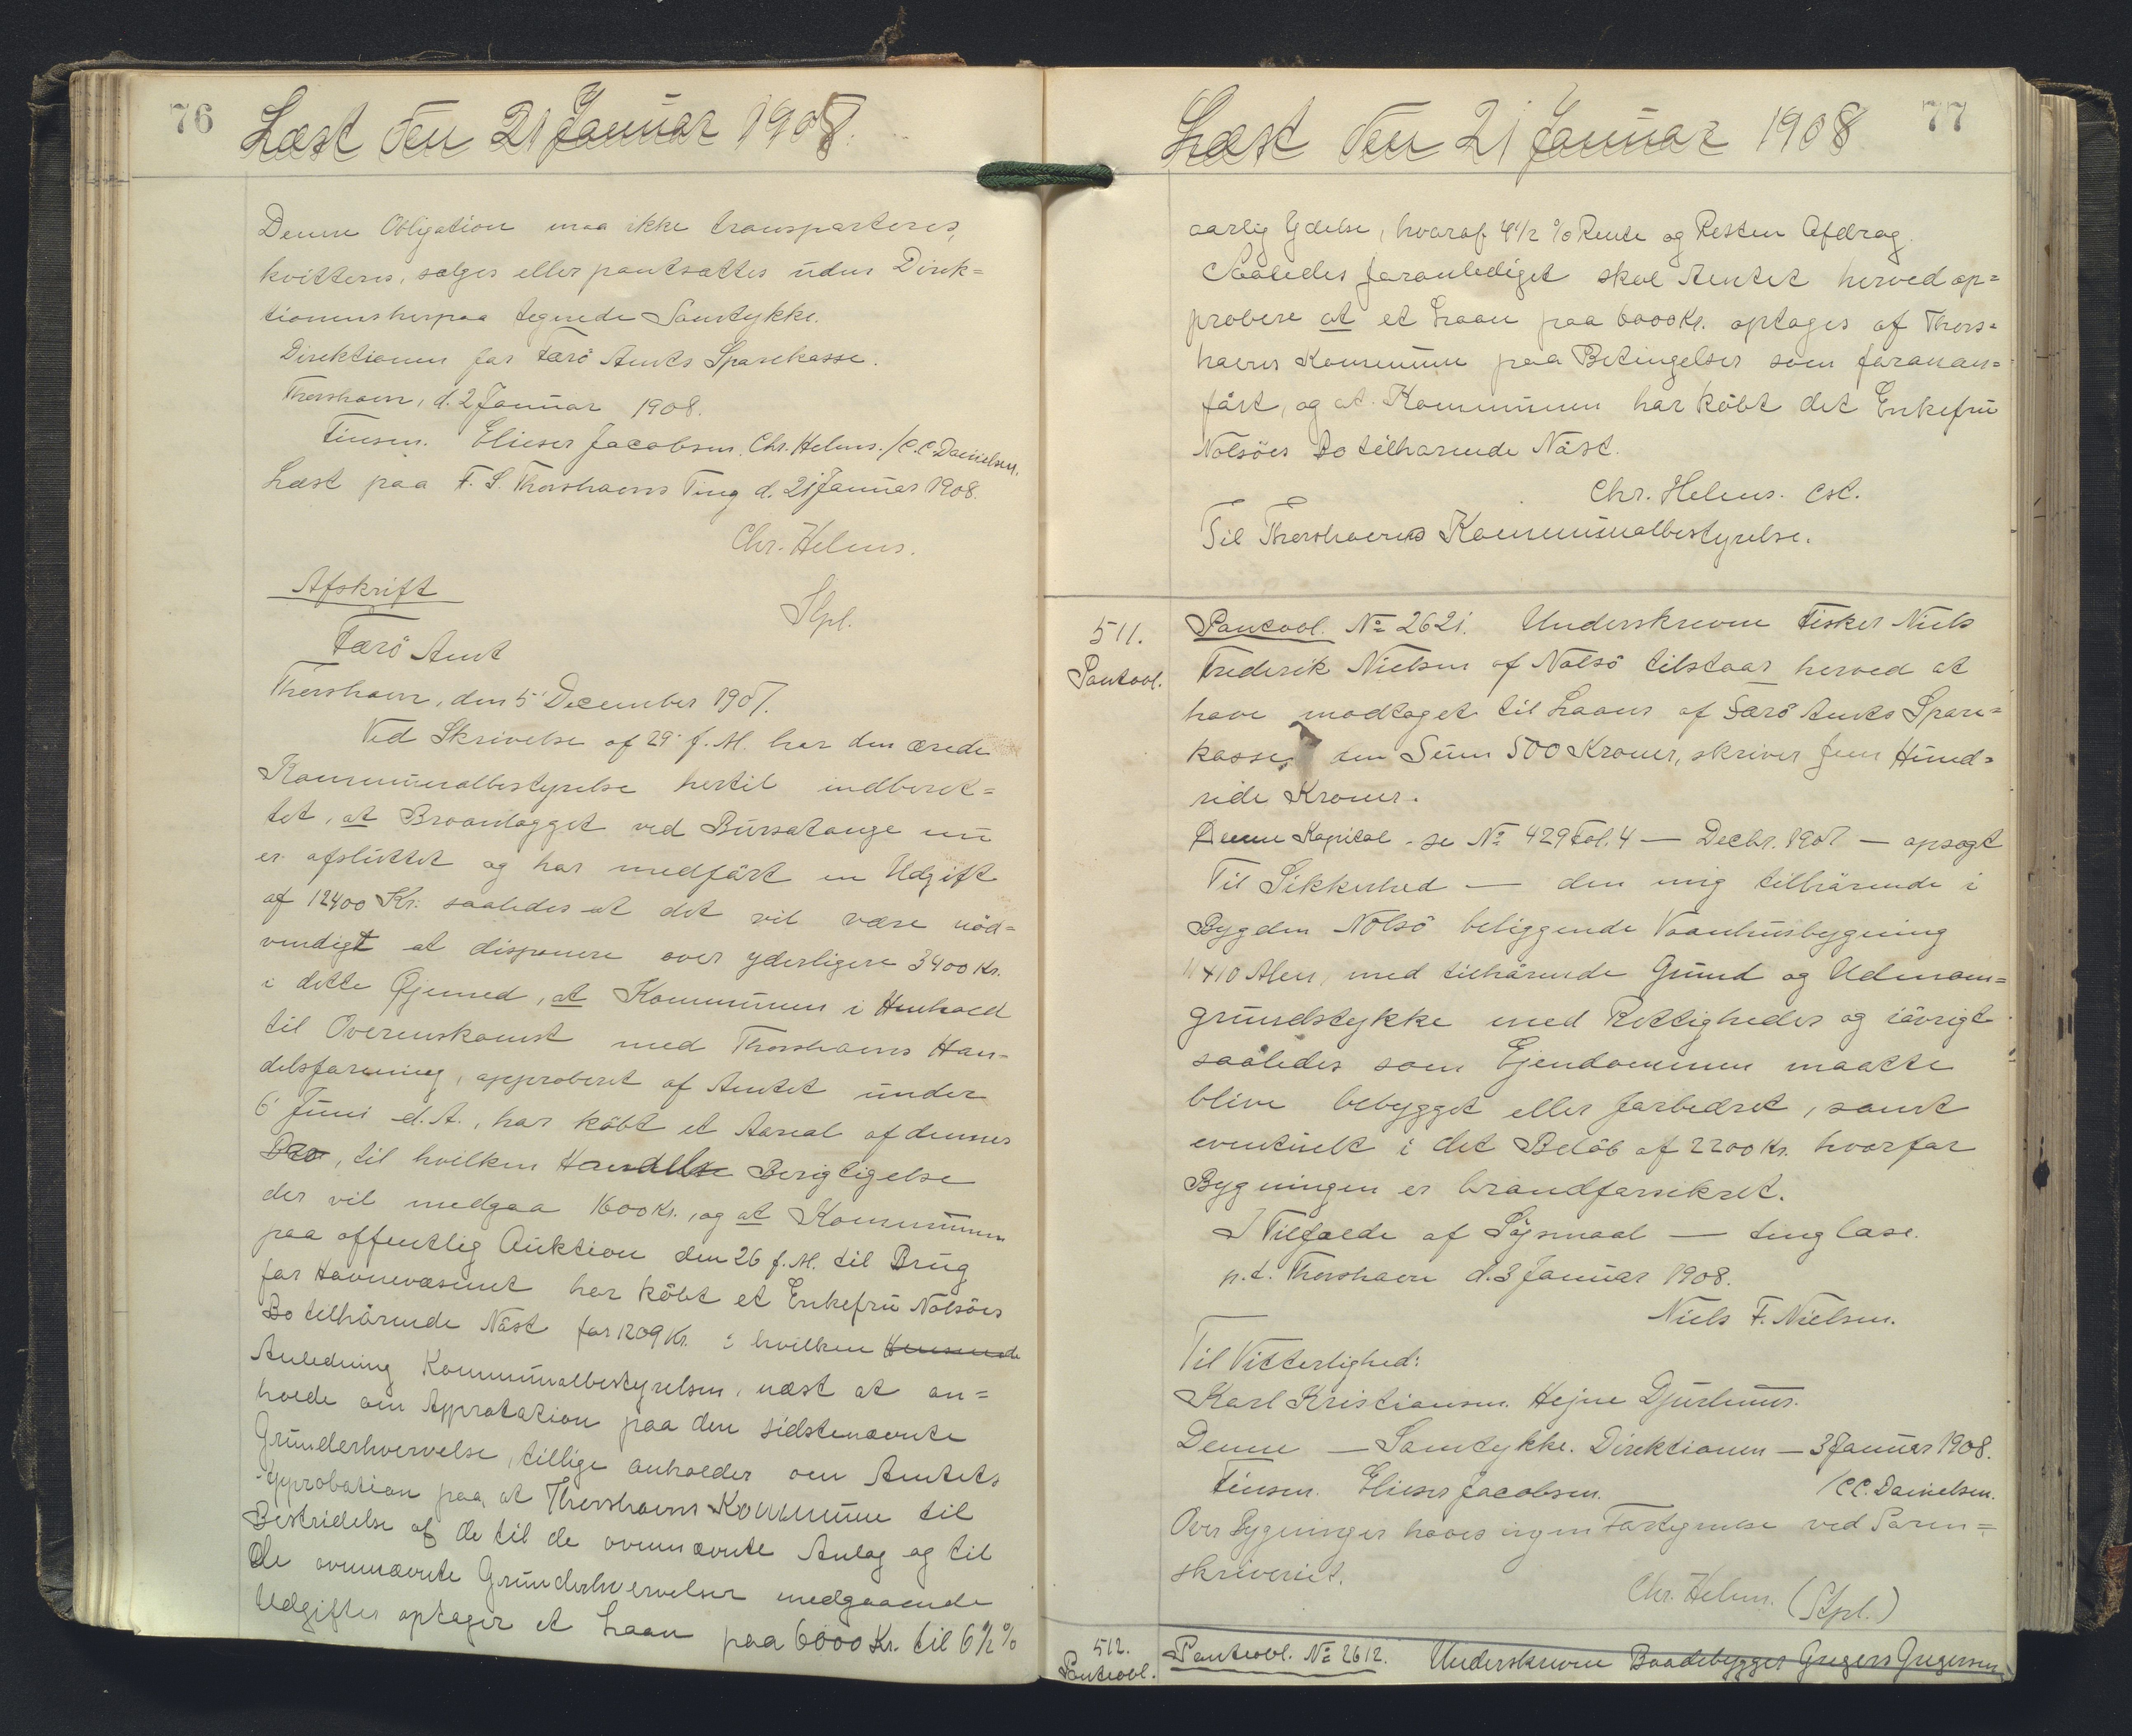 76
Læst den 21 Januar 1908.
Denne Obligation maa ikke transporteres,
kvitteres, sælges eller pantsættes uden Direk=
tionens herpaa tegnede Samtykke.
Direktionen for Færö Amts Sparekasse.
Thorshavn, d. 2 Januar 1908.
Finsen. Elieser Jacobsen. Chr. Helms. / C.C. Danielsen.
Læst paa F. S. Thorshavns Ting d. 21 Januar 1908.
Chr. Helms.
Stpl.
Afskrift
Færö Amt
Thorshavn, den 5' December 1907.
Ved Skrivelse af 29' f. M. har den ærede
Kommunalbestyrelse hertil indberet=
tet, at Broanlægget ved Bursatange nu
er afsluttet og har medført en Udgift
af 12400 Kr. saaledes at det vil være nöd=
vendigt at disponere over yderligere 3400 Kr.
i dette Øjemed, at Kommunen i Henhold
til Overenskomst med Thorshavns Han=
delsforening, approberet af Amtet under
6' Juni d. A., har købt et Areal af dennes
, til hvilken Handels Berigtigelse
der vil medgaa 1600 Kr., og at Kommunen
paa offentlig Auktion den 26 f. M. til Brug
for Havnevæsenet har købt et Enkefru Nolsöes
Bo tilhörende Nöst for 1209 Kr. i hvilken
Anledning Kommunalbestyrelsen, næst at an=
holde om Approbation paa den sidstenævnte
Grunderhvervelse, tillige anholder om Amtets
Approbation paa, at Thorshavns Kommune til
Bestridelse af de til de ovennævnte Anlæg og til
de ovennævnte Grunderhvervelser medgaaende
Udgifter optager et Laan paa 6000 Kr. til 6½%
77
Læst den 21 Januar 1908
aarlig Ydelse, hvoraf 4½ % Rente og Resten Afdrag.
Saaledes foranlediget skal Amtet herved ap=
probere at et Laan paa 6000 Kr. optages af Thors=
havns Kommune paa Betingelser som foranan=
fört, og at Kommunen har købt det Enkefru
Nolsöes Bo tilhörende Nöst.
Chr. Helms. cst.
Til Thorshavns Kommunalbestyrelse.
511.
Pantobl.
Pantobl. № 2621. Underskrevne Fisker Niels
Frederik Nielsen af Nolsö tilstaar herved at
have modtaget til Laans af Færö Amts Spare=
kasse den Sum 500 Kroner, skriver fem Hund=
rede Kroner.
Denne Kapital - se № 429 Fol. 4 — Decbr. 1907 — opsagt
Til Sikkerhed — den mig tilhörende i
Bygden Nolsö beliggende Vaanhusbygning
11 x 10 Alen, med tilhörende Grund og Udmarn=
grundstykke med Rettigheder og iövrigt
saaledes som Ejendommen maatte
blive bebygget eller forbedret, samt
eventuelt i det Belöb af 2200 Kr. hvorfor
Bygningen er brandforsikret.
I Tilfælde af Søjsmaal — tinglæse.
p.t. Thorshavn d. 3 Januar 1908.
Niels F. Nielsen.
Til Vitterlighed:
Karl Kristiansen. Hejne Djurhuus.
Denne — Samtykke. Direktionen — 3 Januar 1908.
Finsen. Elieser Jacobsen. / C.C. Danielsen.
Over Bygninger haves ingen Fortegnelse ved Soren=
skriveriet.
Chr. Helms. (Stpl.)
512.
Pantobl.
Pantobl. № 2612. Underskrevne Baadebygger Gregers Gregersen,